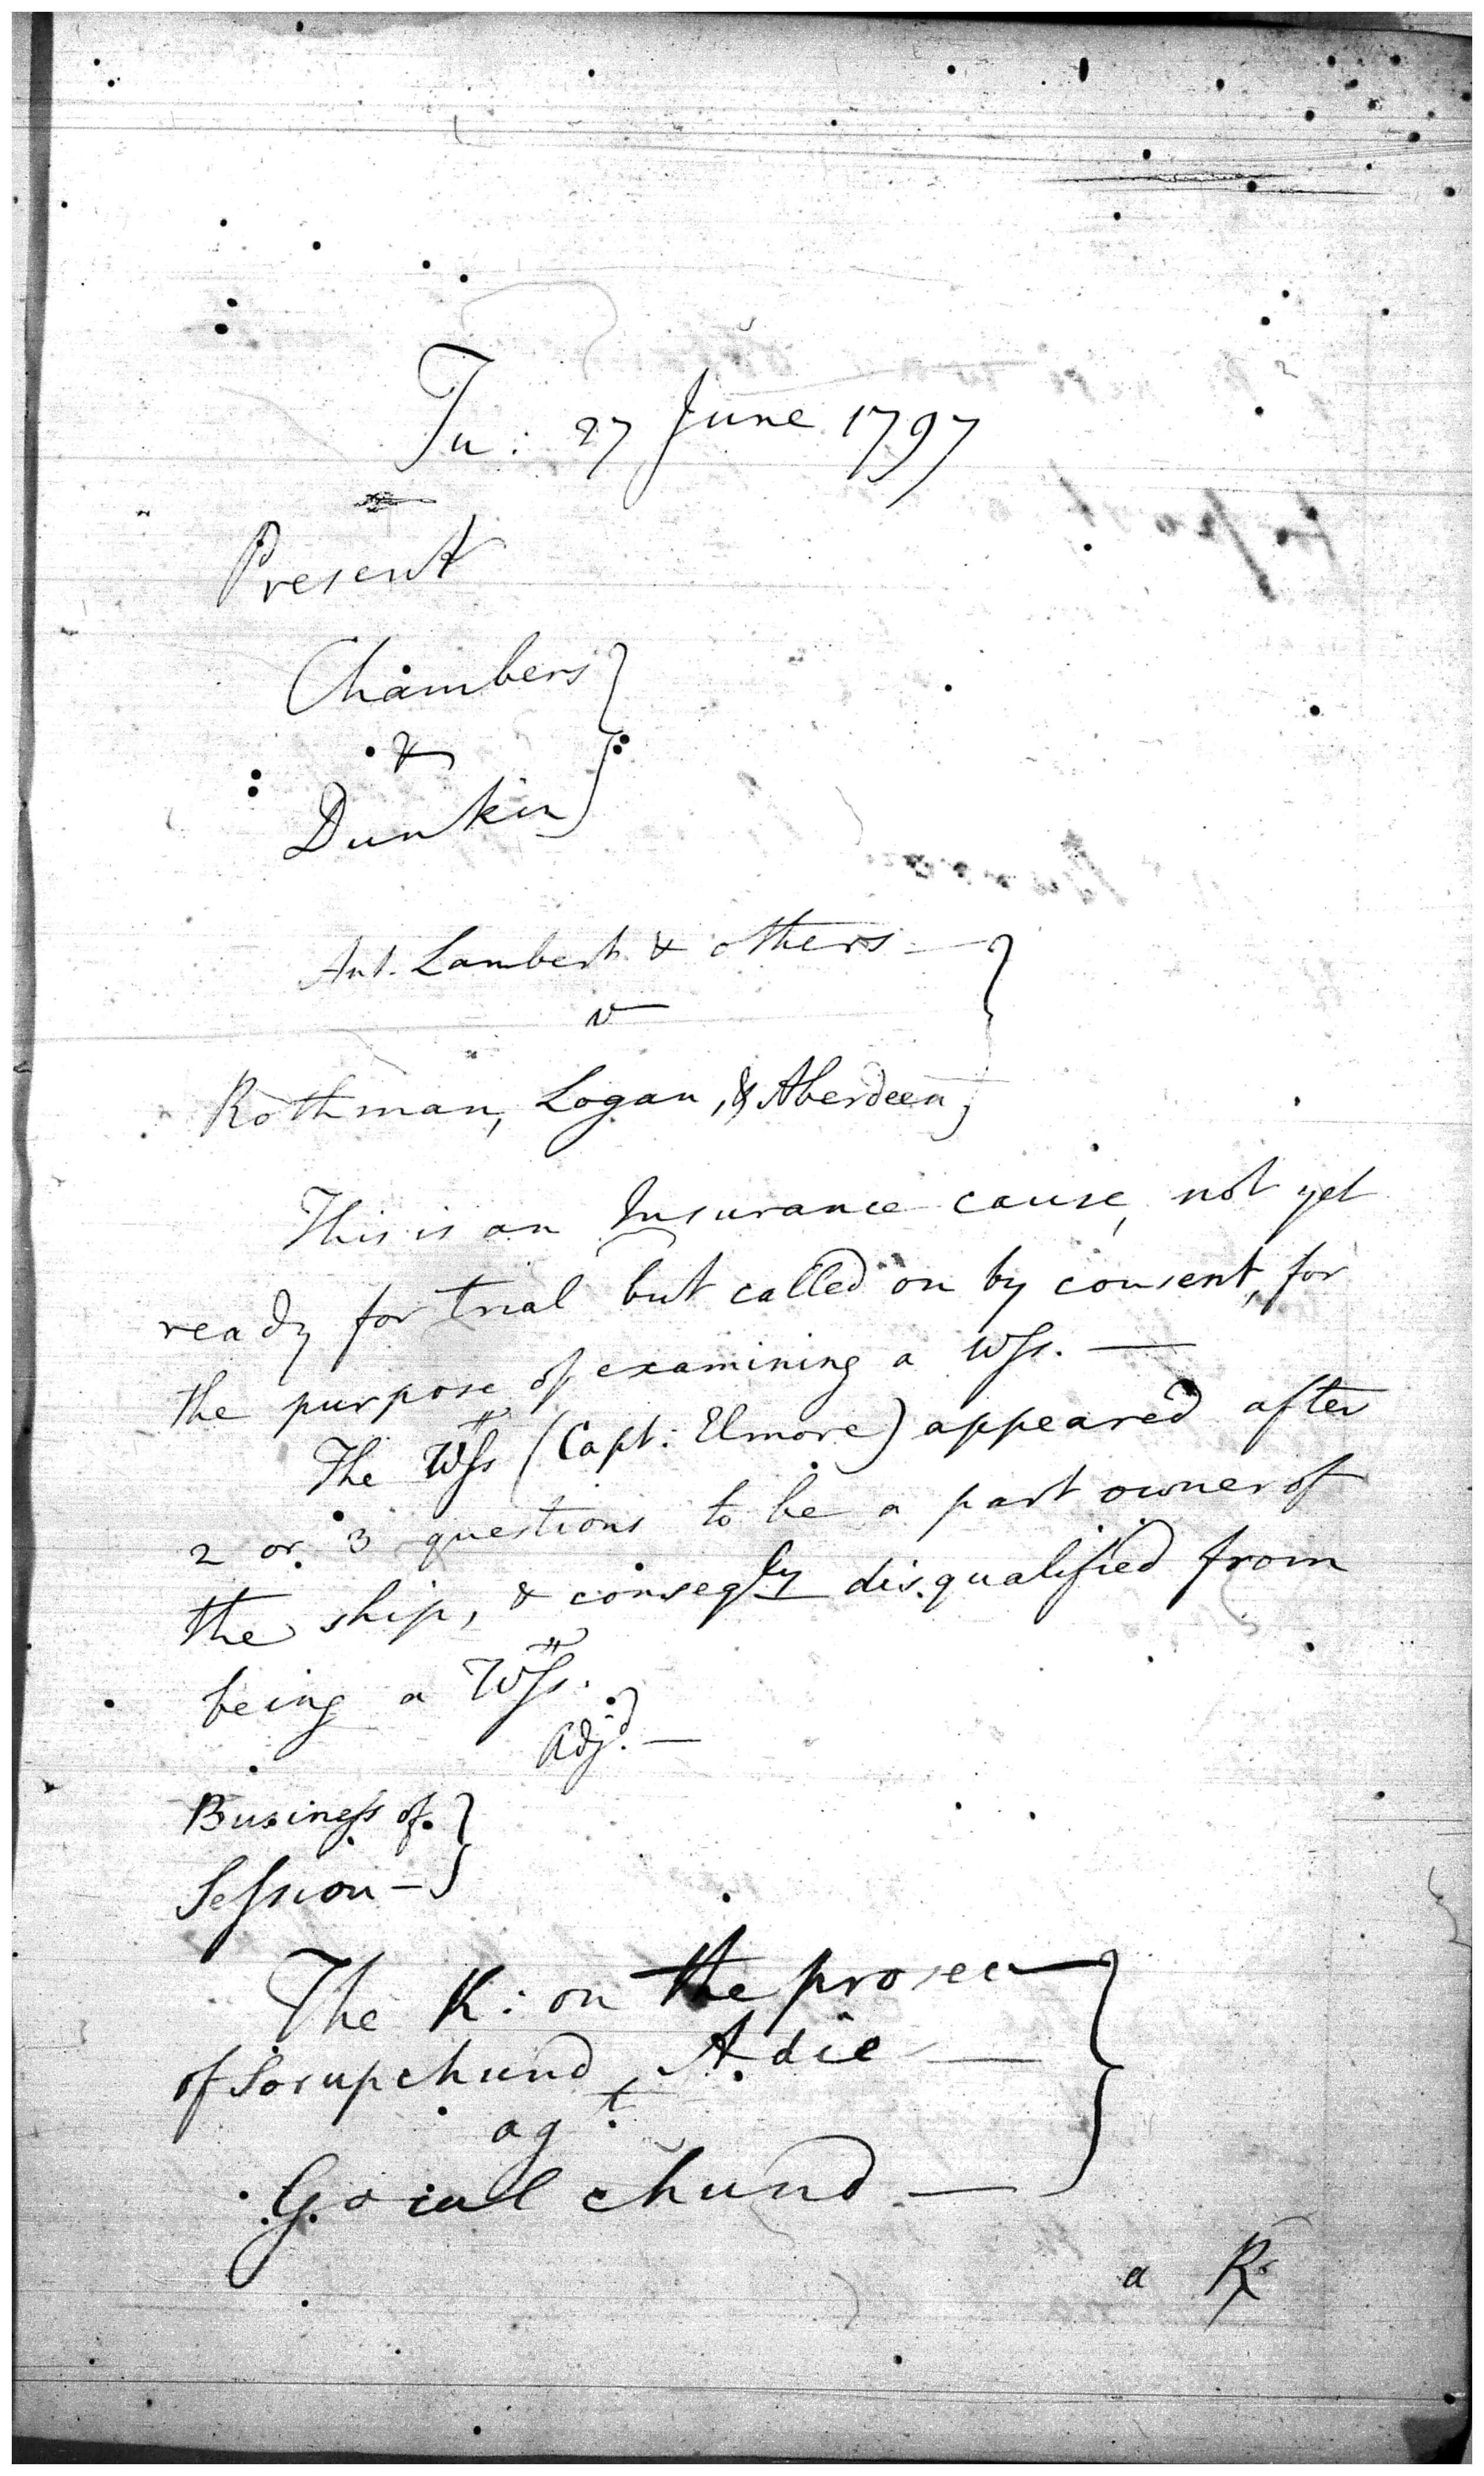 Tu: 27 June 1797
Present
Chambers
&
Dunkin
Ant. Lambert & others —
v
Rothman, Logan, & Aberdeen
This is an Insurance cause, not yet
ready for trial but called on by consent, for
the purpose of examining a Wſs. —
The Wſs (Capt: Elmore) appeared after
2 or 3 questions to be a part owner of
the ship, & conseqly disqualified from
being a Wſs.
Adjd. —
Busineſs of
Seſsion —
The K: on the prosec
of Sorupchund, A. die —
agt
chund —
a